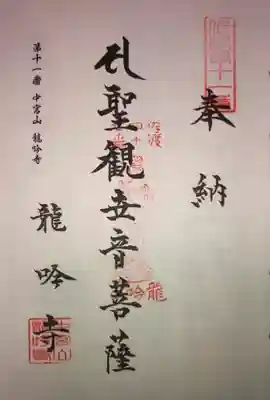 奉納
聖観世音菩薩
龍吟寺
第十一番 中宮山 龍吟寺
佐渡
龍吟